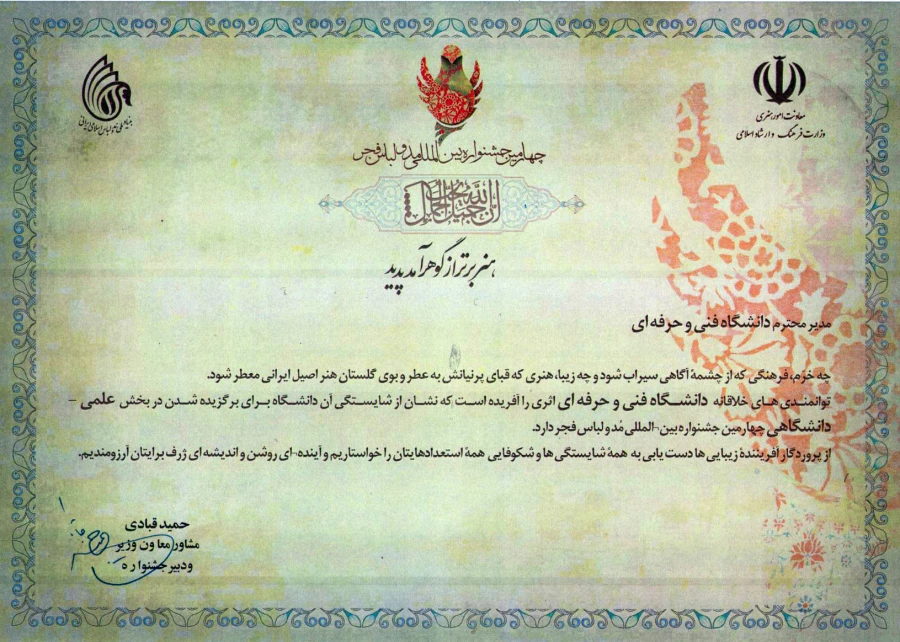 بنیاد ملی مد و لباس اسلامی ایرانی
معاونت امور هنری
وزارت فرهنگ و ارشاد اسلامی
چهارمین جشنواره بین المللی مد و لباس فجر
ان الله جمیل یحب الجمال
هنر برتر از گوهر آمد پدید
مدیر محترم دانشگاه فنی و حرفه ای
چه خرم، فرهنگی که از چشمه آگاهی سیراب شود و چه زیبا، هنری که قبای پرنیانش به عطر و بوی گلستان هنر اصیل ایرانی معطر شود.
توانمندی های خلاقانه دانشگاه فنی و حرفه ای اثری را آفریده است که نشان از شایستگی آن دانشگاه برای برگزیده شدن در بخش علمی –
دانشگاهی چهارمین جشنواره بین-المللی مُد و لباس فجر دارد.
از پروردگار آفرینندهٔ زیبایی ها دست یابی به همهٔ شایستگی ها و شکوفایی همهٔ استعدادهایتان را خواستاریم و آینده-ای روشن و اندیشه ای ژرف برایتان آرزومندیم.
حمید قبادی
مشاور معاون وزیر
و دبیر جشنواره